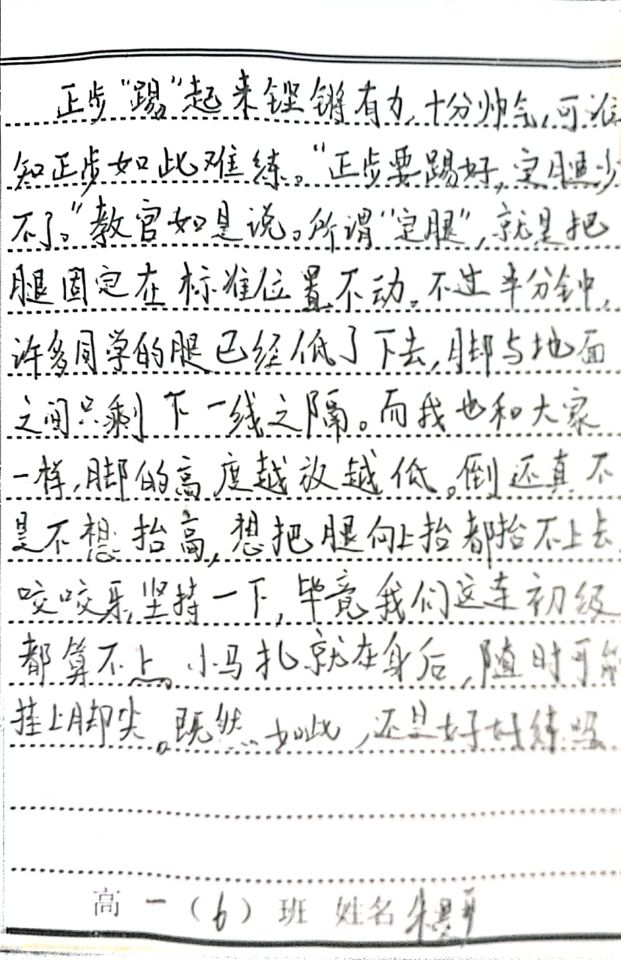 正步“踢”起来铿锵有力,十分帅气,可谁
知正步如此难练。“正步要踢好,定腿少
不了。”教官如是说。所谓“定腿”,就是把
腿固定在标准位置不动。不过半分钟,
许多同学的腿已经低了下去,脚与地面
之间只剩下一线之隔。而我也和大家
一样,脚的高度越放越低。倒还真不
是不想抬高,想把腿向上抬都抬不上去,
咬咬牙,坚持一下,毕竟我们这连初级
都算不上。小马扎就在身后,随时可能
挂上脚尖。既然如此,还是好好练吧
高一(6)班 姓名 朱